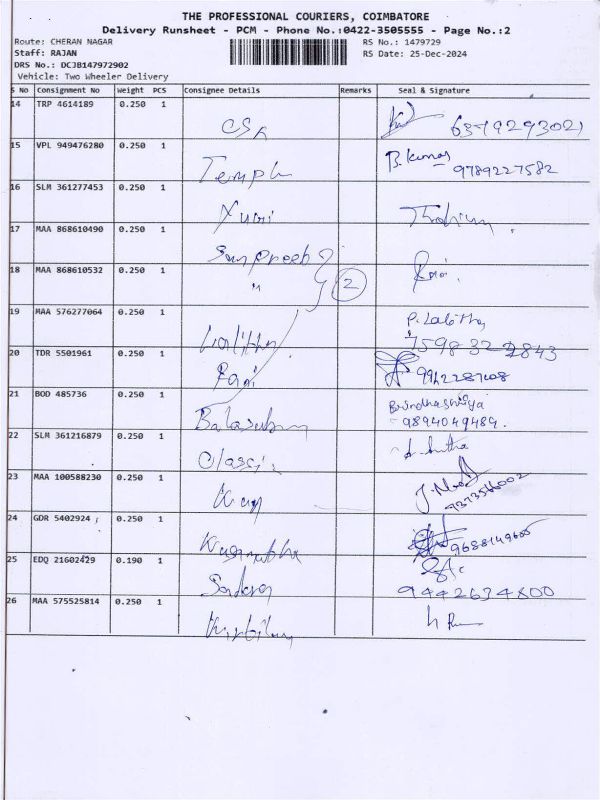 THE PROFESSIONAL COURIERS, COIMBATORE
Delivery Runsheet - PCM - Phone No.:0422-3505555 - Page No.:2
Route: CHERAN NAGAR RS No.: 1479729
Staff: RAJAN RS Date: 25-Dec-2024
DRS No.: DCJB147972902
Vehicle: Two Wheeler Delivery
S No Consignment No Weight PCS Consignee Details Remarks Seal & Signature
14 TRP 4614189 0.250 1
CSK 6379293021
15 VPL 949476280 0.250 1 B.Kumar
Temple 9789227582
16 SLM 361277453 0.250 1
17 MAA 868610490 0.250 1
Sanpreeb
18 MAA 868610532 0.250 1 Rani
" 2
19 MAA 576277064 0.250 1 P. Lalitha
Lalitha 7598322843
20 TDR 5501961 0.250 1
Rani
21 BOD 485736 0.250 1 Brindhashriya
Balasubm 9894049484.
22 SLM 361216879 0.250 1
Classic
23 MAA 100588230 0.250 1
9373566002
24 GDR 5402924 0.250 1
9688149605
25 EDQ 21602429 0.190 1
9442634800
26 MAA 575525814 0.250 1